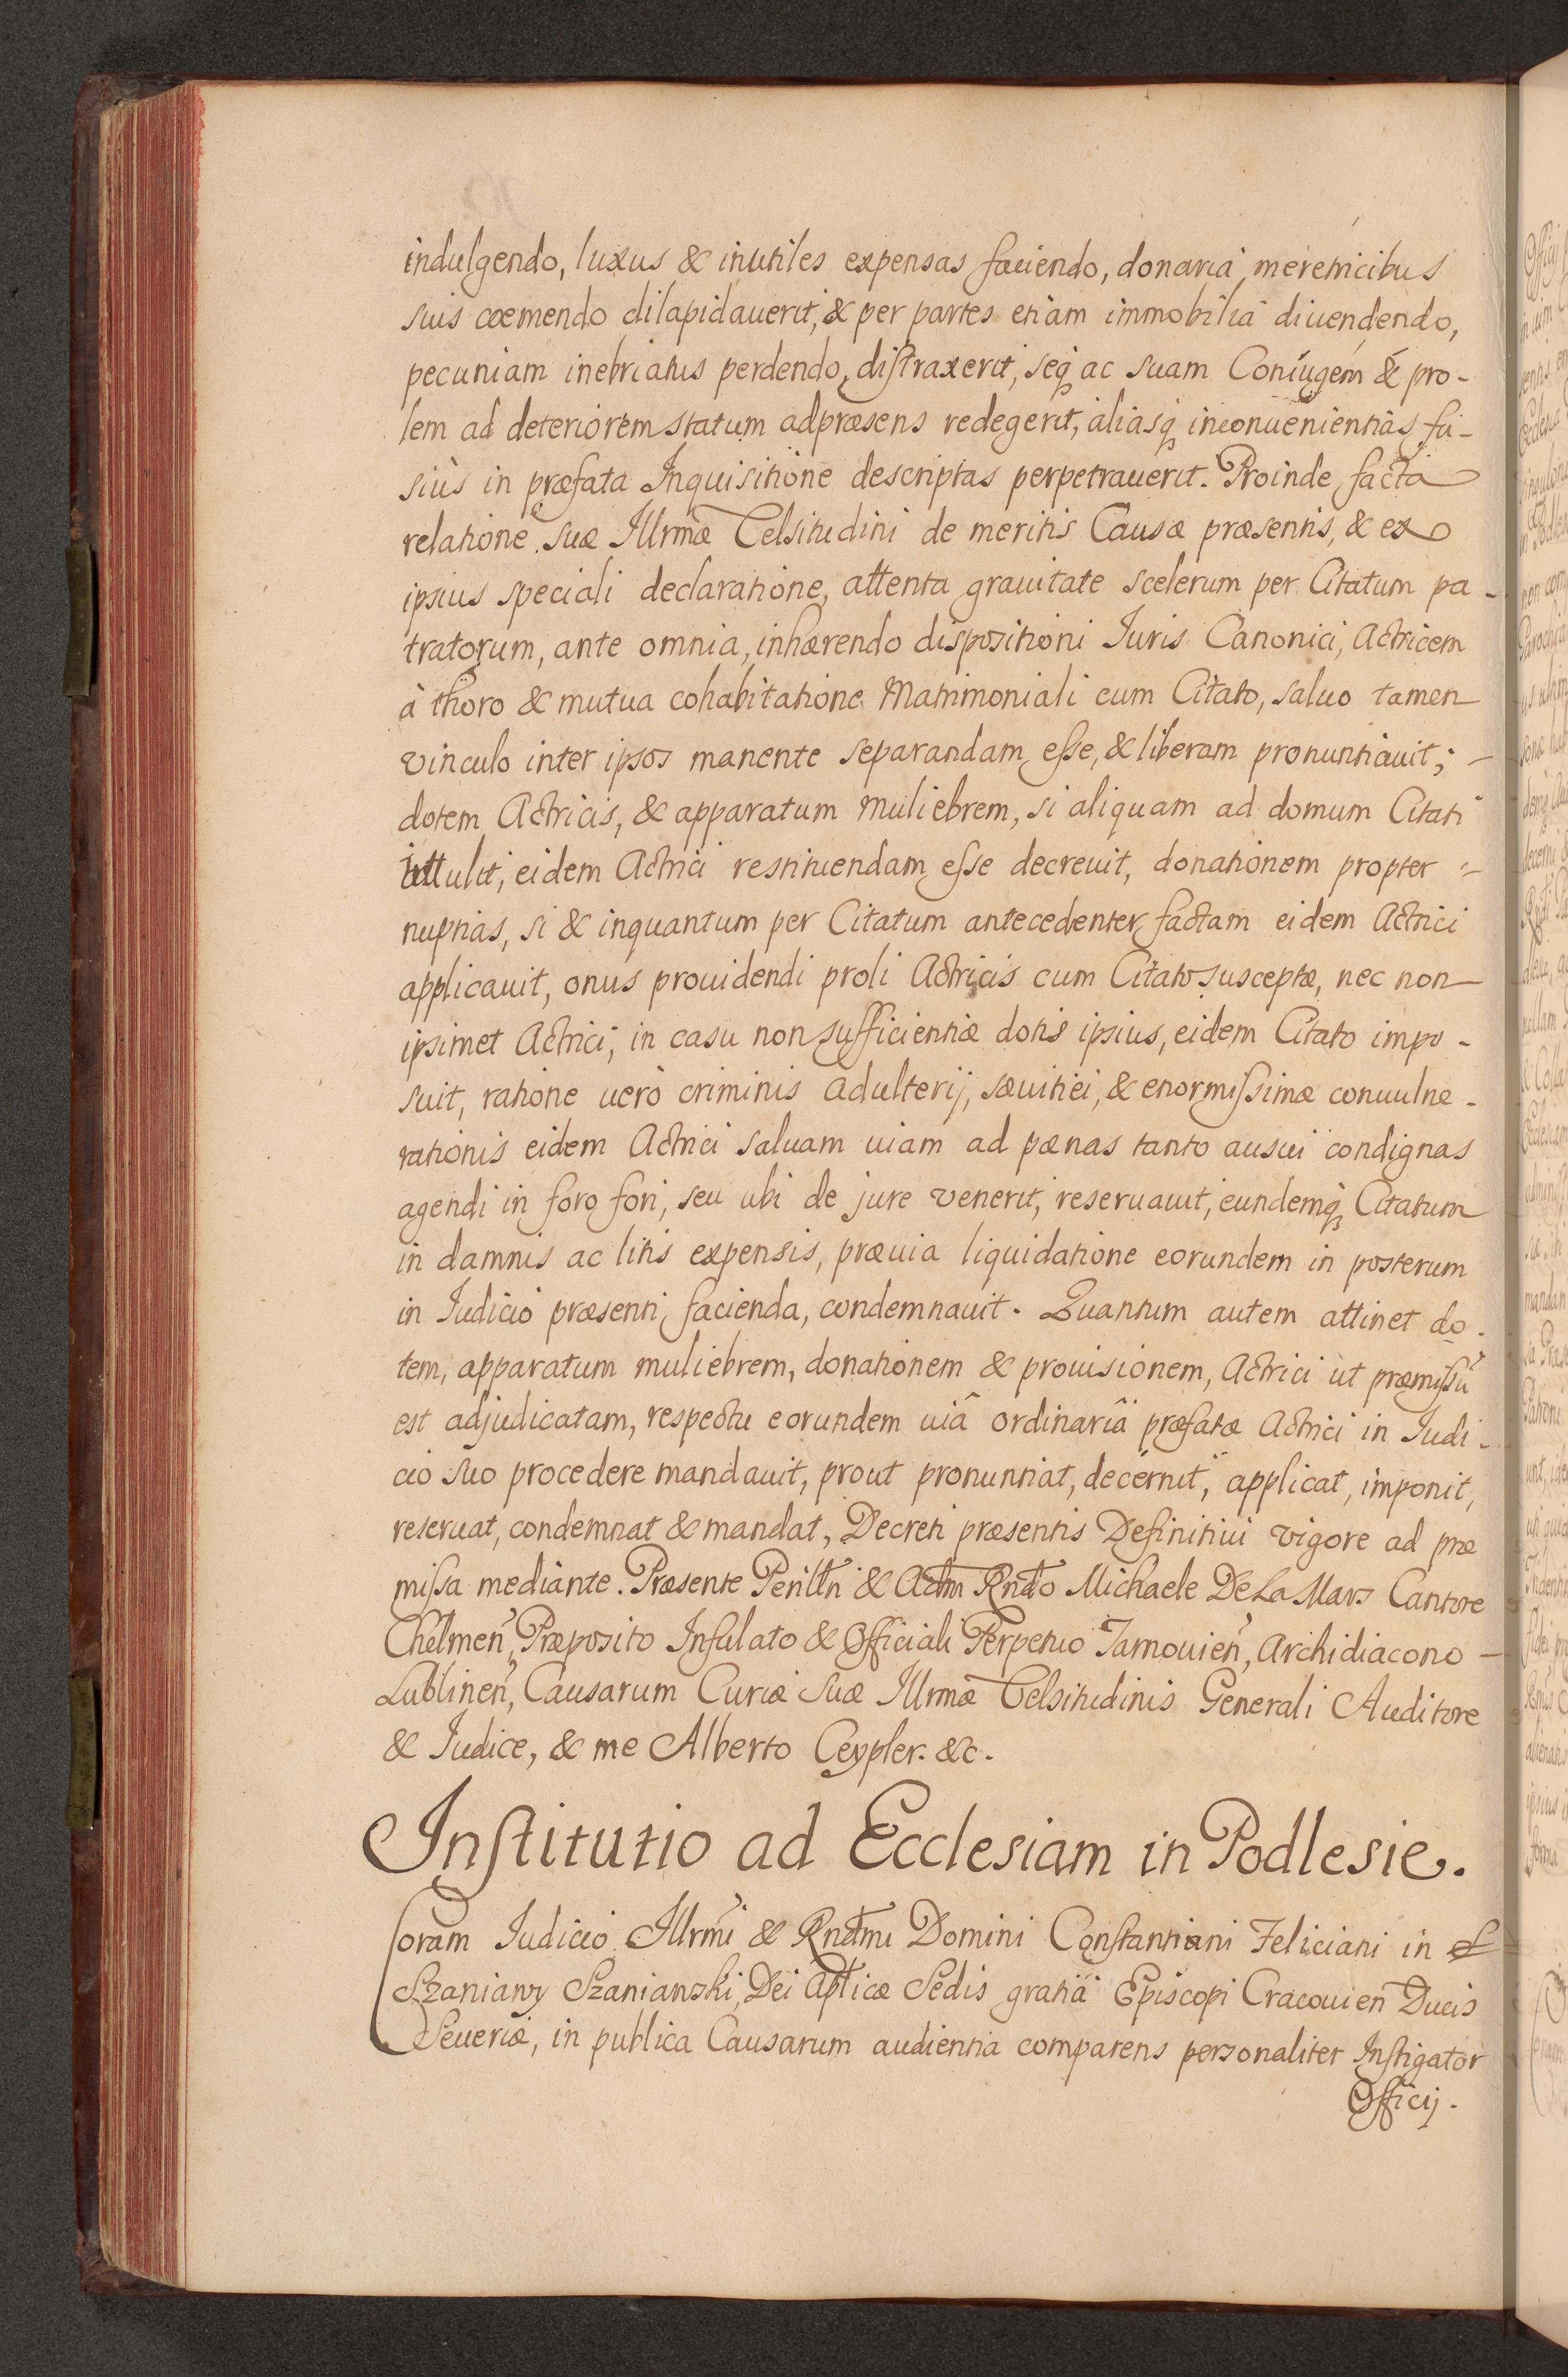 indulgendo, luxus & inutiles expensas faciendo, donaria meretricibus
suis coemendo dilapidauerit, & per partes etiam immobilia diuendendo,
pecuniam inebriatus perdendo, distraxerit, seq₃ ac suam Coniugem & pro-
lem ad deteriorem statum adpræsens redegerit, aliasq₃ inconuenientias fu-
siùs in præfata Inquisitione descriptas perpetrauerit. Proinde facta
relatione suæ Illrmæ Celsitudini de meritis Causæ præsentis, & ex
ipsius speciali declaratione, attenta grauitate scelerum per Citatum pa-
tratorum, ante omnia, inhærendo dispositioni Iuris Canonici, Actricem
à thoro & mutua cohabitatione Matrimoniali cum Citato, saluo tamen
vinculo inter ipsos manente separandam esse, & liberam pronuntiauit; -
dotem Actricis, & apparatum muliebrem, si aliquam ad domum Citati
intulit, eidem Actrici restituendam esse decreuit, donationem propter -
nuptias, si & inquantum per Citatum antecedenter factam eidem Actrici
applicauit, onus prouidendi proli Actricis cum Citato susceptæ, nec non
ipsimet Actrici, in casu non sufficientiæ dotis ipsius, eidem Citato impo-
suit, ratione uerò criminis adulterij, sæuitiei, & enormissimæ conuulne-
rationis eidem Actrici saluam uiam ad pænas tanto ausui condignas
agendi in foro fori, seu ubi de jure venerit, reseruauit, eundemq₃ Citatum
in damnis ac litis expensis, præuia liquidatione eorundem in posterum
in Iudicio præsenti facienda, condemnauit. Quantum autem attinet do-
tem, apparatum muliebrem, donationem & prouisionem, Actrici ut præmissū
est adjudicatam, respectu eorundem uiâ ordinariâ præfatæ Actrici in Iudi-
cio suo procedere mandauit, prout pronuntiat, decernit, applicat, imponit,
reseruat, condemnat & mandat, Decreti præsentis Definitiui vigore ad præ
missa mediante. Præsente Perilltri & Adm Rndo Michaele De La Mars Cantore
Chelmen, Præposito Infulato & Officiali Perpetuo Tarnouien, Archidiacono -
Lublinen, Causarum Curiæ Suæ Illrmæ Celsitudinis Generali Auditore
& Iudice, & me Alberto Ceypler. &c.
Institutio ad Ecclesiam in Podlesie.
Coram Iudicio Illrmi & Rndmi Domini Constantiani Feliciani in
Szaniawy Szaniawski, Dei Aplicæ Sedis gratiâ Episcopi Cracouien Ducis
Seueriæ, in publica Causarum audientia comparens personaliter Instigator
Officij.